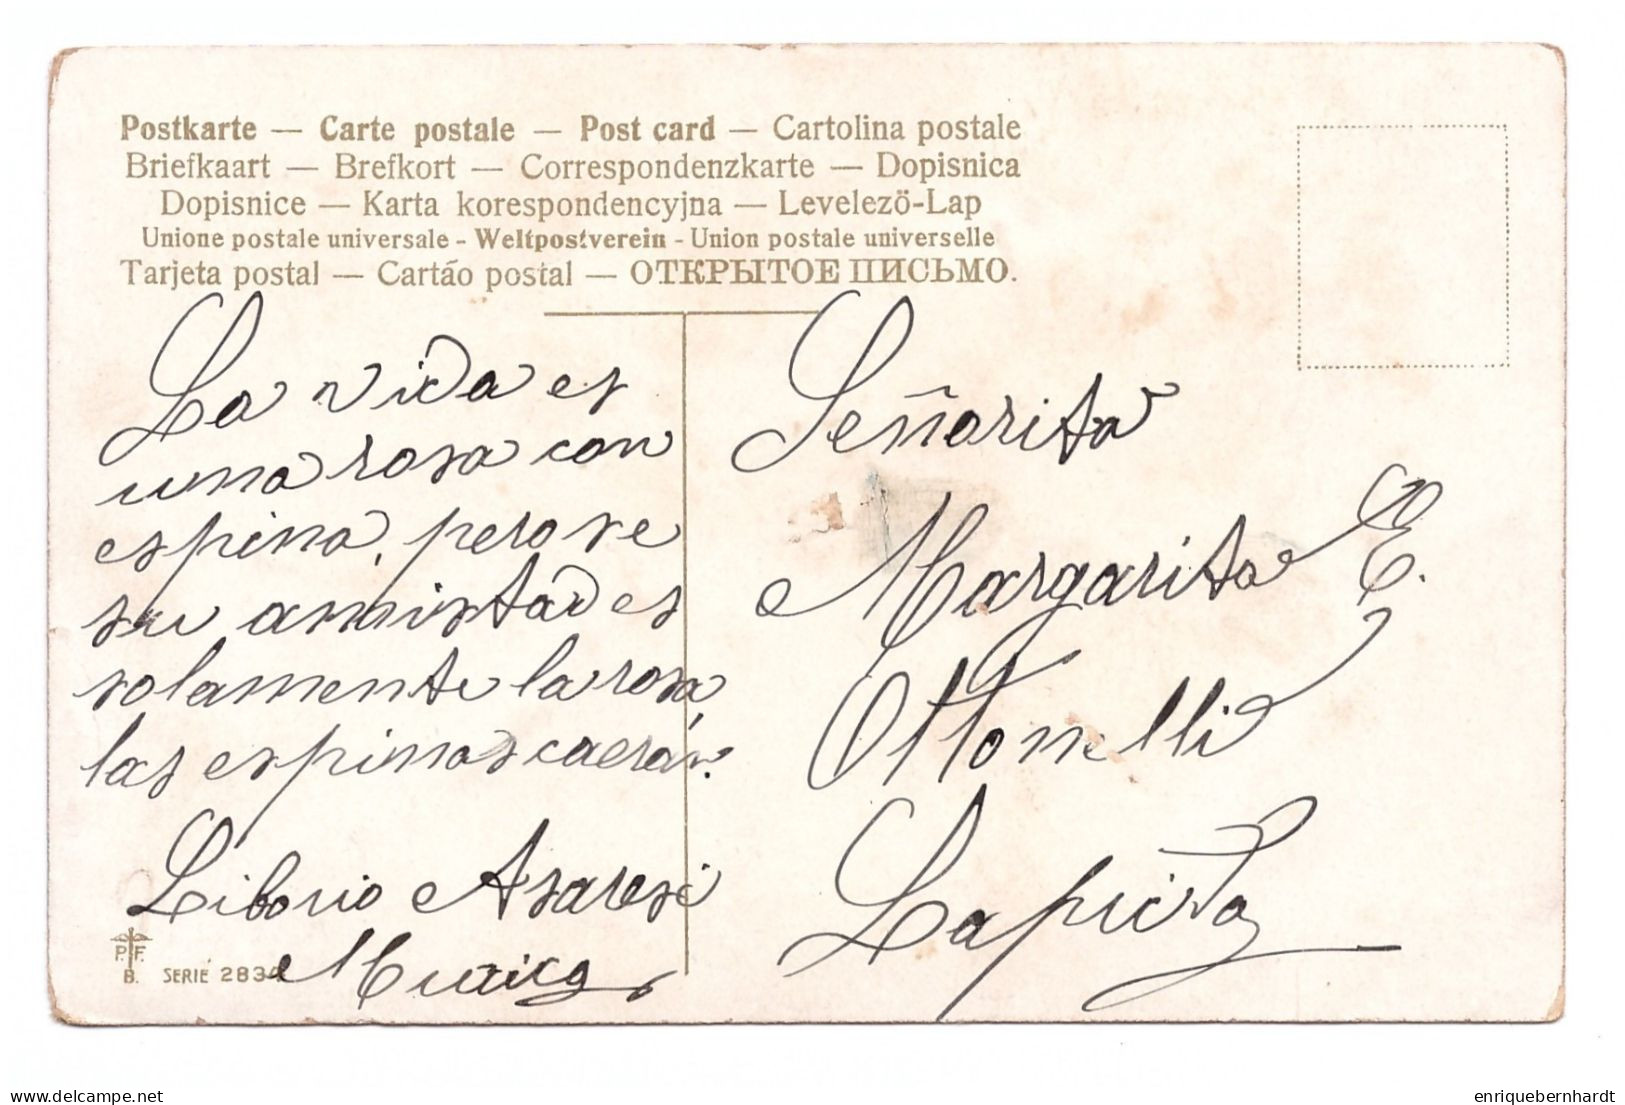 Postkarte — Carte postale — Post card — Cartolina postale
Briefkaart — Brefkort — Correspondenzkarte — Dopisnica
Dopisnice — Karta korespondencyjna — Levelezö-Lap
Unione postale universale - Weltpostverein - Union postale universelle
Tarjeta postal — Cartão postal — ОТКРЫТОЕ ПИСЬМО.
La vida es
una rosa con
espina, pero se
su amistad es
solamente la rosa,
las espinas caerán.
Liborio
P. F.
B. SERIE 283
Señorita
Margarita E.
Ottonelli
Lapida
www.delcampe.net
enriquebernhardt